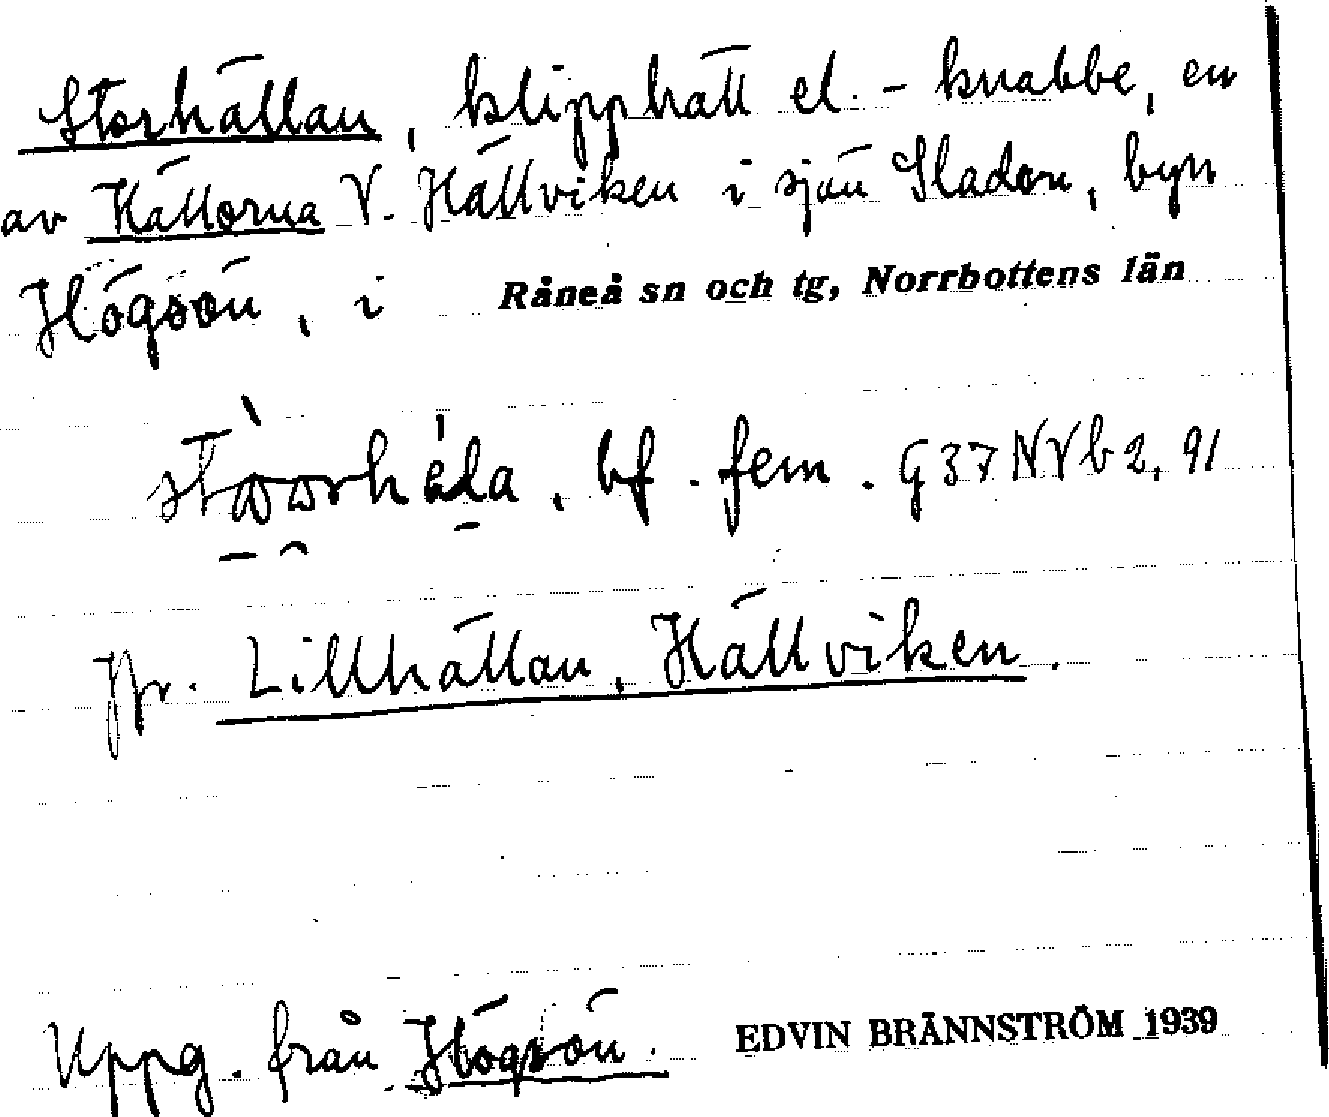 Storhällan, klipphäll el. - knabbe, en
av Hällorna V. Hällviken i sjön Sladan, byn
Högsön, i Råneå sn och tg, Norrbottens län
bf. fem. G37 NVb2, 91
Jfr. Lillhällan, Hällviken.
Uppg. från Högsön. EDVIN BRÄNNSTRÖM 1939